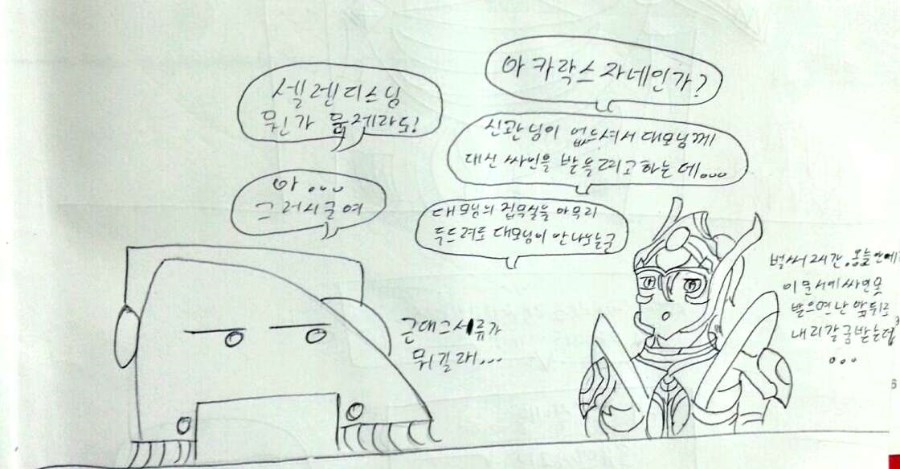 셀렌디스님
뭔가 문제라도!
아 카락스 자네인가?
신관님이 없으셔서 대모님께
대신 싸인을 받을려고 하는데...
아...
그러시군여
대모님의 집무실을 아무리
두드려도 대모님이 안나오는군
근데 그서류가
뭐길래...
벌써 2시간, 오늘안에
이 문서에 싸인못
받으면 난 앞뒤로
내리갈굼받는데
...